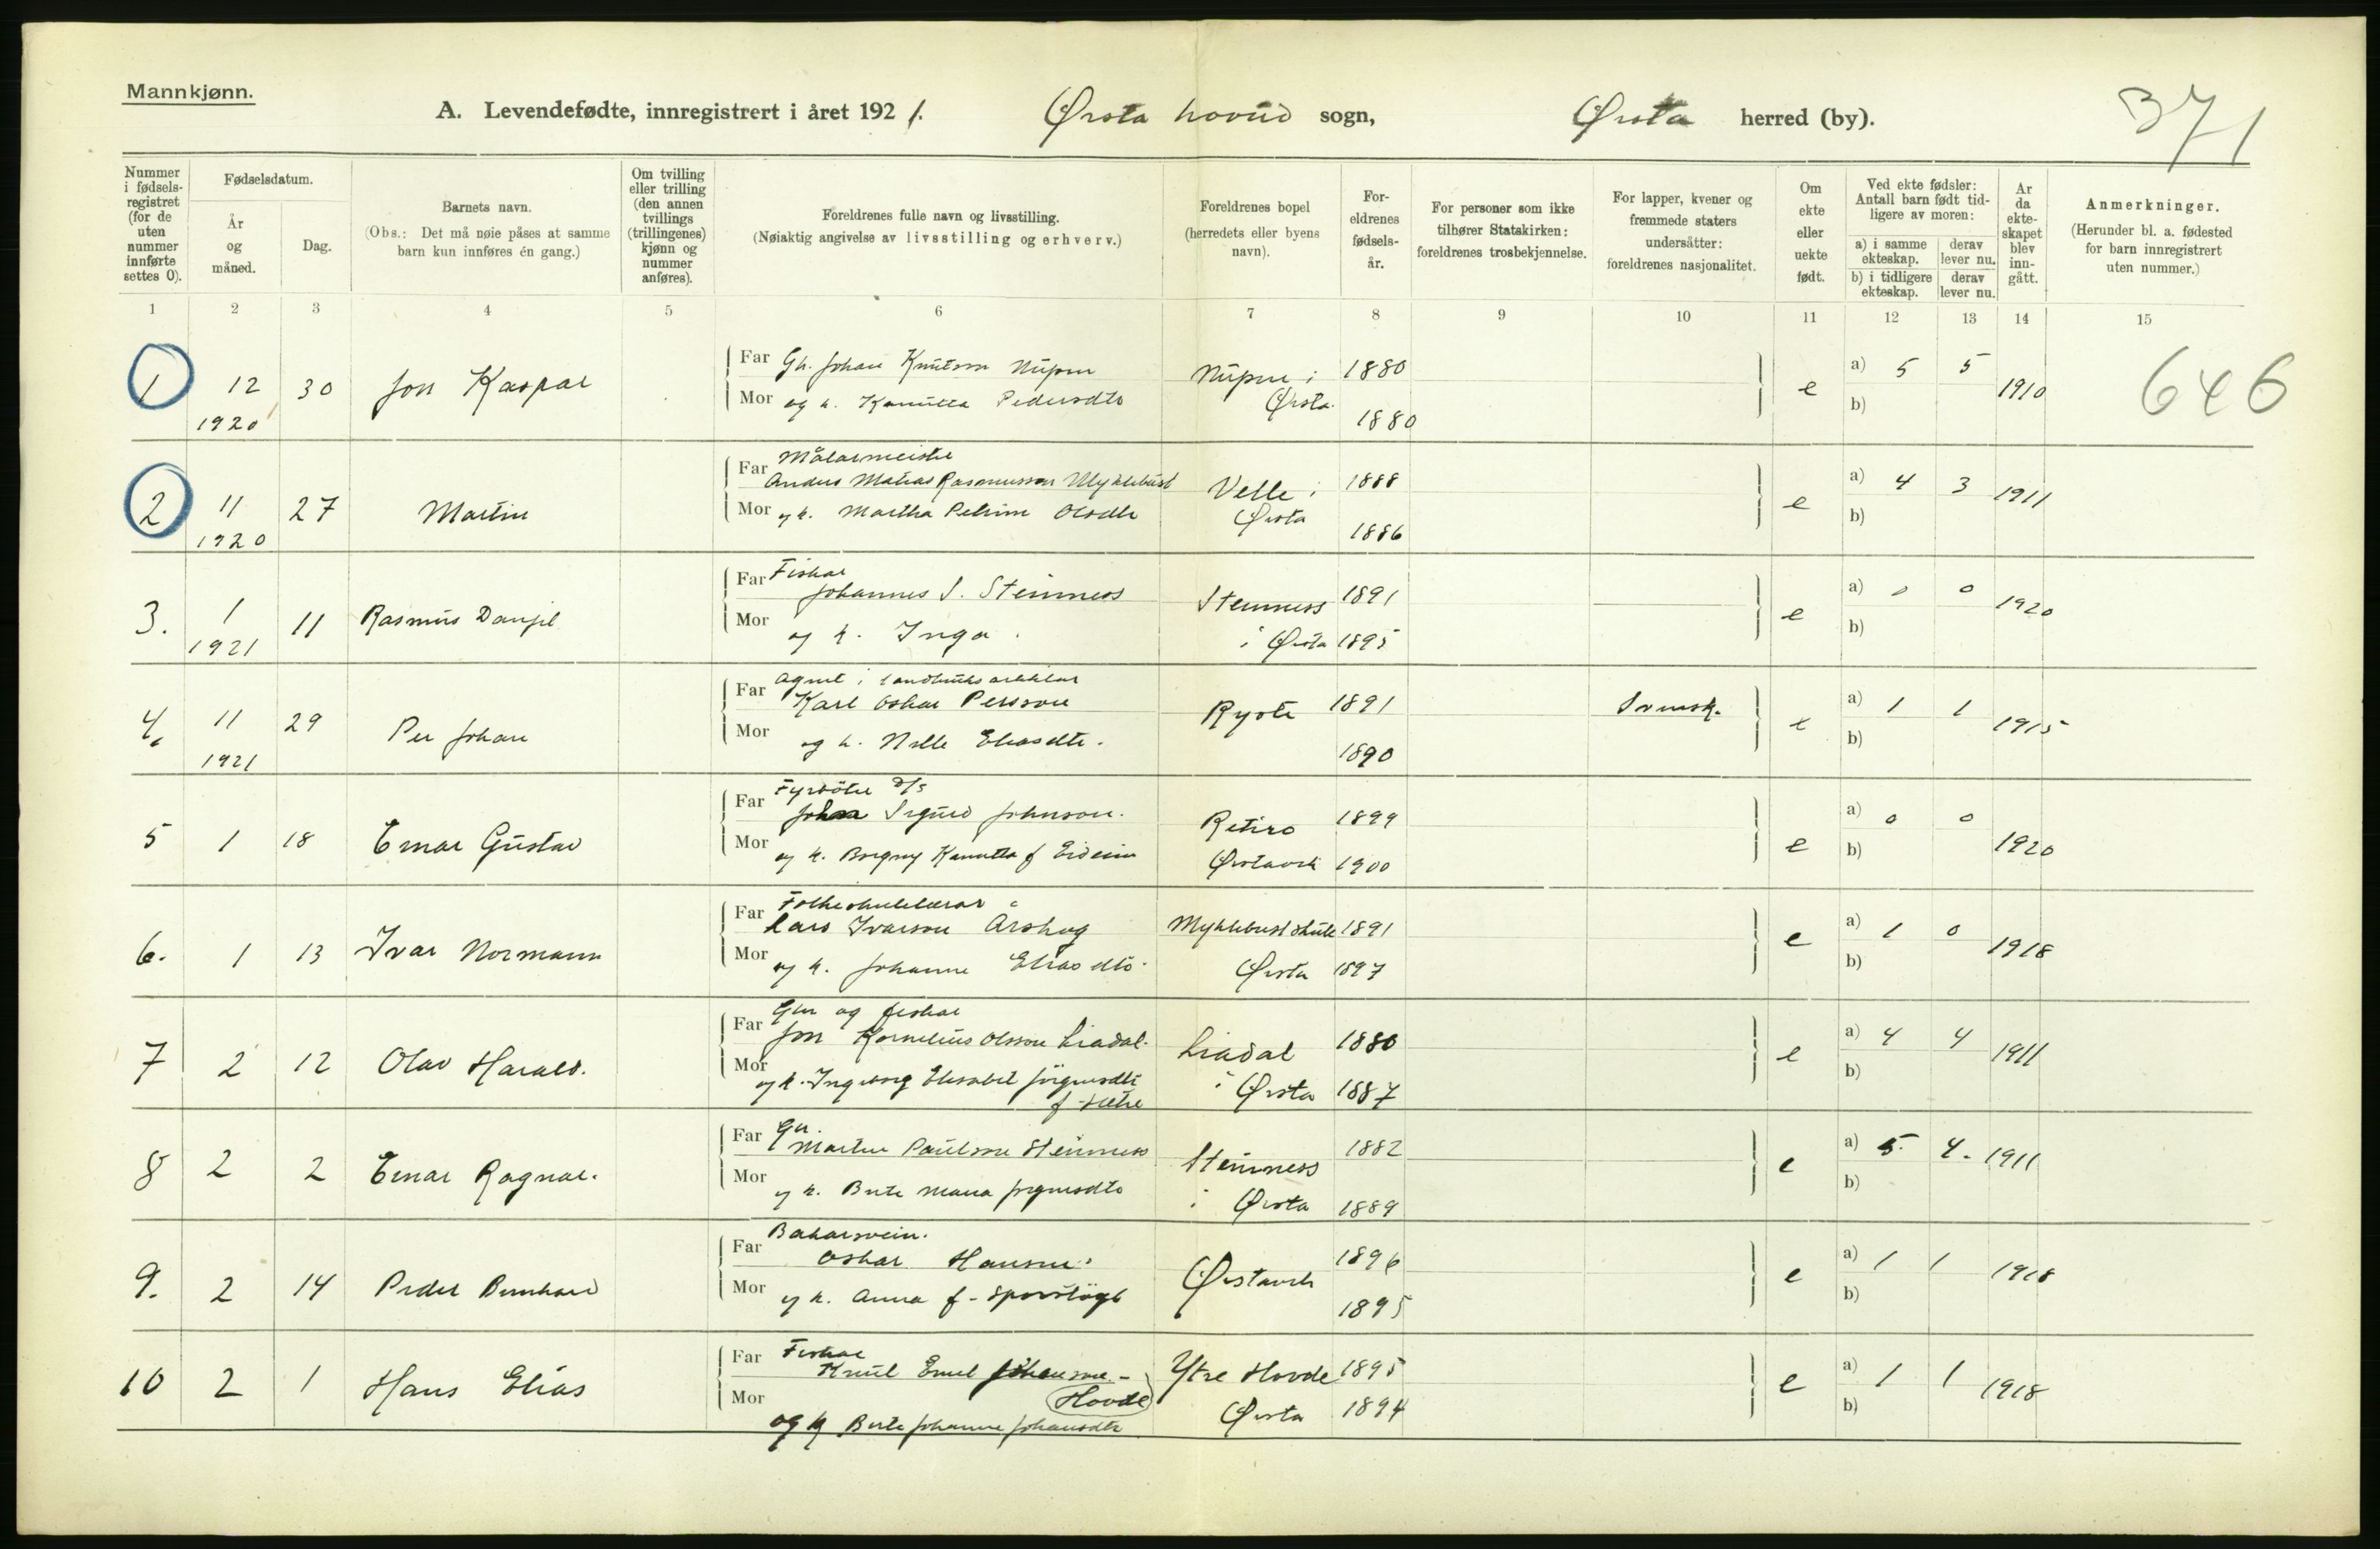 Mannkjønn.
A. Levendefødte, innregistrert i året 1921. Ørsta hovud sogn, Ørsta herred (by). 371
Nummer i fødsels-registret (for de uten nummer innførte settes 0).
Fødselsdatum.
År og måned.
Dag.
Barnets navn.
(Obs.: Det må nøie påses at samme barn kun innføres én gang.)
Om tvilling eller trilling (den annen tvillings (trillingenes) kjønn og nummer anføres).
Foreldrenes fulle navn og livsstilling.
(Nøiaktig angivelse av livsstilling og erhverv.)
Foreldrenes bopel (herredets eller byens navn).
For-eldrenes fødsels-år.
For personer som ikke tilhører Statskirken: foreldrenes trosbekjennelse.
For lapper, kvener og fremmede staters undersåtter: foreldrenes nasjonalitet.
Om ekte eller uekte født.
Ved ekte fødsler: Antall barn født tid-ligere av moren:
a) i samme ekteskap. derav lever nu.
b) i tidligere ekteskap. derav lever nu.
Ar da ekte-skapet blev inn-gått.
Anmerkninger.
(Herunder bl. a. fødested for barn innregistrert uten nummer.)
1 2 3 4 5 6 7 8 9 10 11 12 13 14 15
1 12 30 Jon Kaspar Far Gb. Johan Knutson Nupen Nupen i 1880 e a) 5 5 1910 646
1920 Mor og k. Kanutta Pedersdtr Ørsta 1880 b)
Målarmeister
2 11 27 Martin Far Anders Matias Rasmusson Myklebust Velle i 1888 e a) 4 3 1911
1920 Mor og k. Martha Petrine Olsdtr Ørsta 1886 b)
Fiskar
3. 1 11 Rasmus Danjel Far Johannes S. Steinness Steinness 1891 e a) 0 0 1920
1921 Mor og k. Inga i Ørsta 1895 b)
Agent i landbruksartiklar
4. 11 29 Per Johan Far Karl Oskar Persson Ryste 1891 Svensk. e a) 1 1 1915
1921 Mor og k. Nille Eliasdtr. 1890 b)
Fyrbötar D/S
5 1 18 Einar Gustav Far Johan Sigurd Johnson. Retiro 1899 e a) 0 0 1920
Mor og k. Borgny Kanutta f Eideim Ørstavik 1900 b)
Folkeskulelærar
6. 1 13 Ivar Normann Far Lars Ivarson Årskog Myklebust skule 1891 e a) 1 0 1918
Mor og k. Johanne Eliasdtr. Ørsta 1897 b)
Gbr og fiskar
7 2 12 Olav Harald. Far Jon Kornelius Olsson Liadal. Liadal 1880 e a) 4 4 1911
Mor og k. Ingeborg Elisabet Jörgensdtr i Ørsta 1887 b)
f Sætre
Gbr.
8 2 2 Einar Ragnar. Far Martin Paulson Steinness Steinness 1882 e a) 5. 4. 1911
Mor og k. Berte Maria Jörgensdtr i Ørsta 1889 b)
Bakarsvein.
9. 2 14 Peder Bernhard Far Oskar Hansen. Ørstavik 1896 e a) 1 1 1918
Mor og k. Anna f. 1895 b)
Fiskar
10 2 1 Hans Elias Far Knut Emil Johanson - Ytre Hovde 1895 e a) 1 1 1918
Mor Hovde Ørsta 1894 b)
og k Berte Johanne Johansdtr